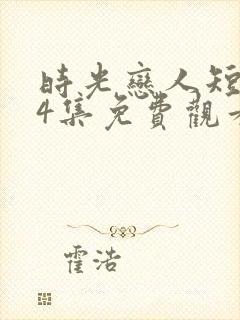 時光戀人短
4集免費觀看
霍浩